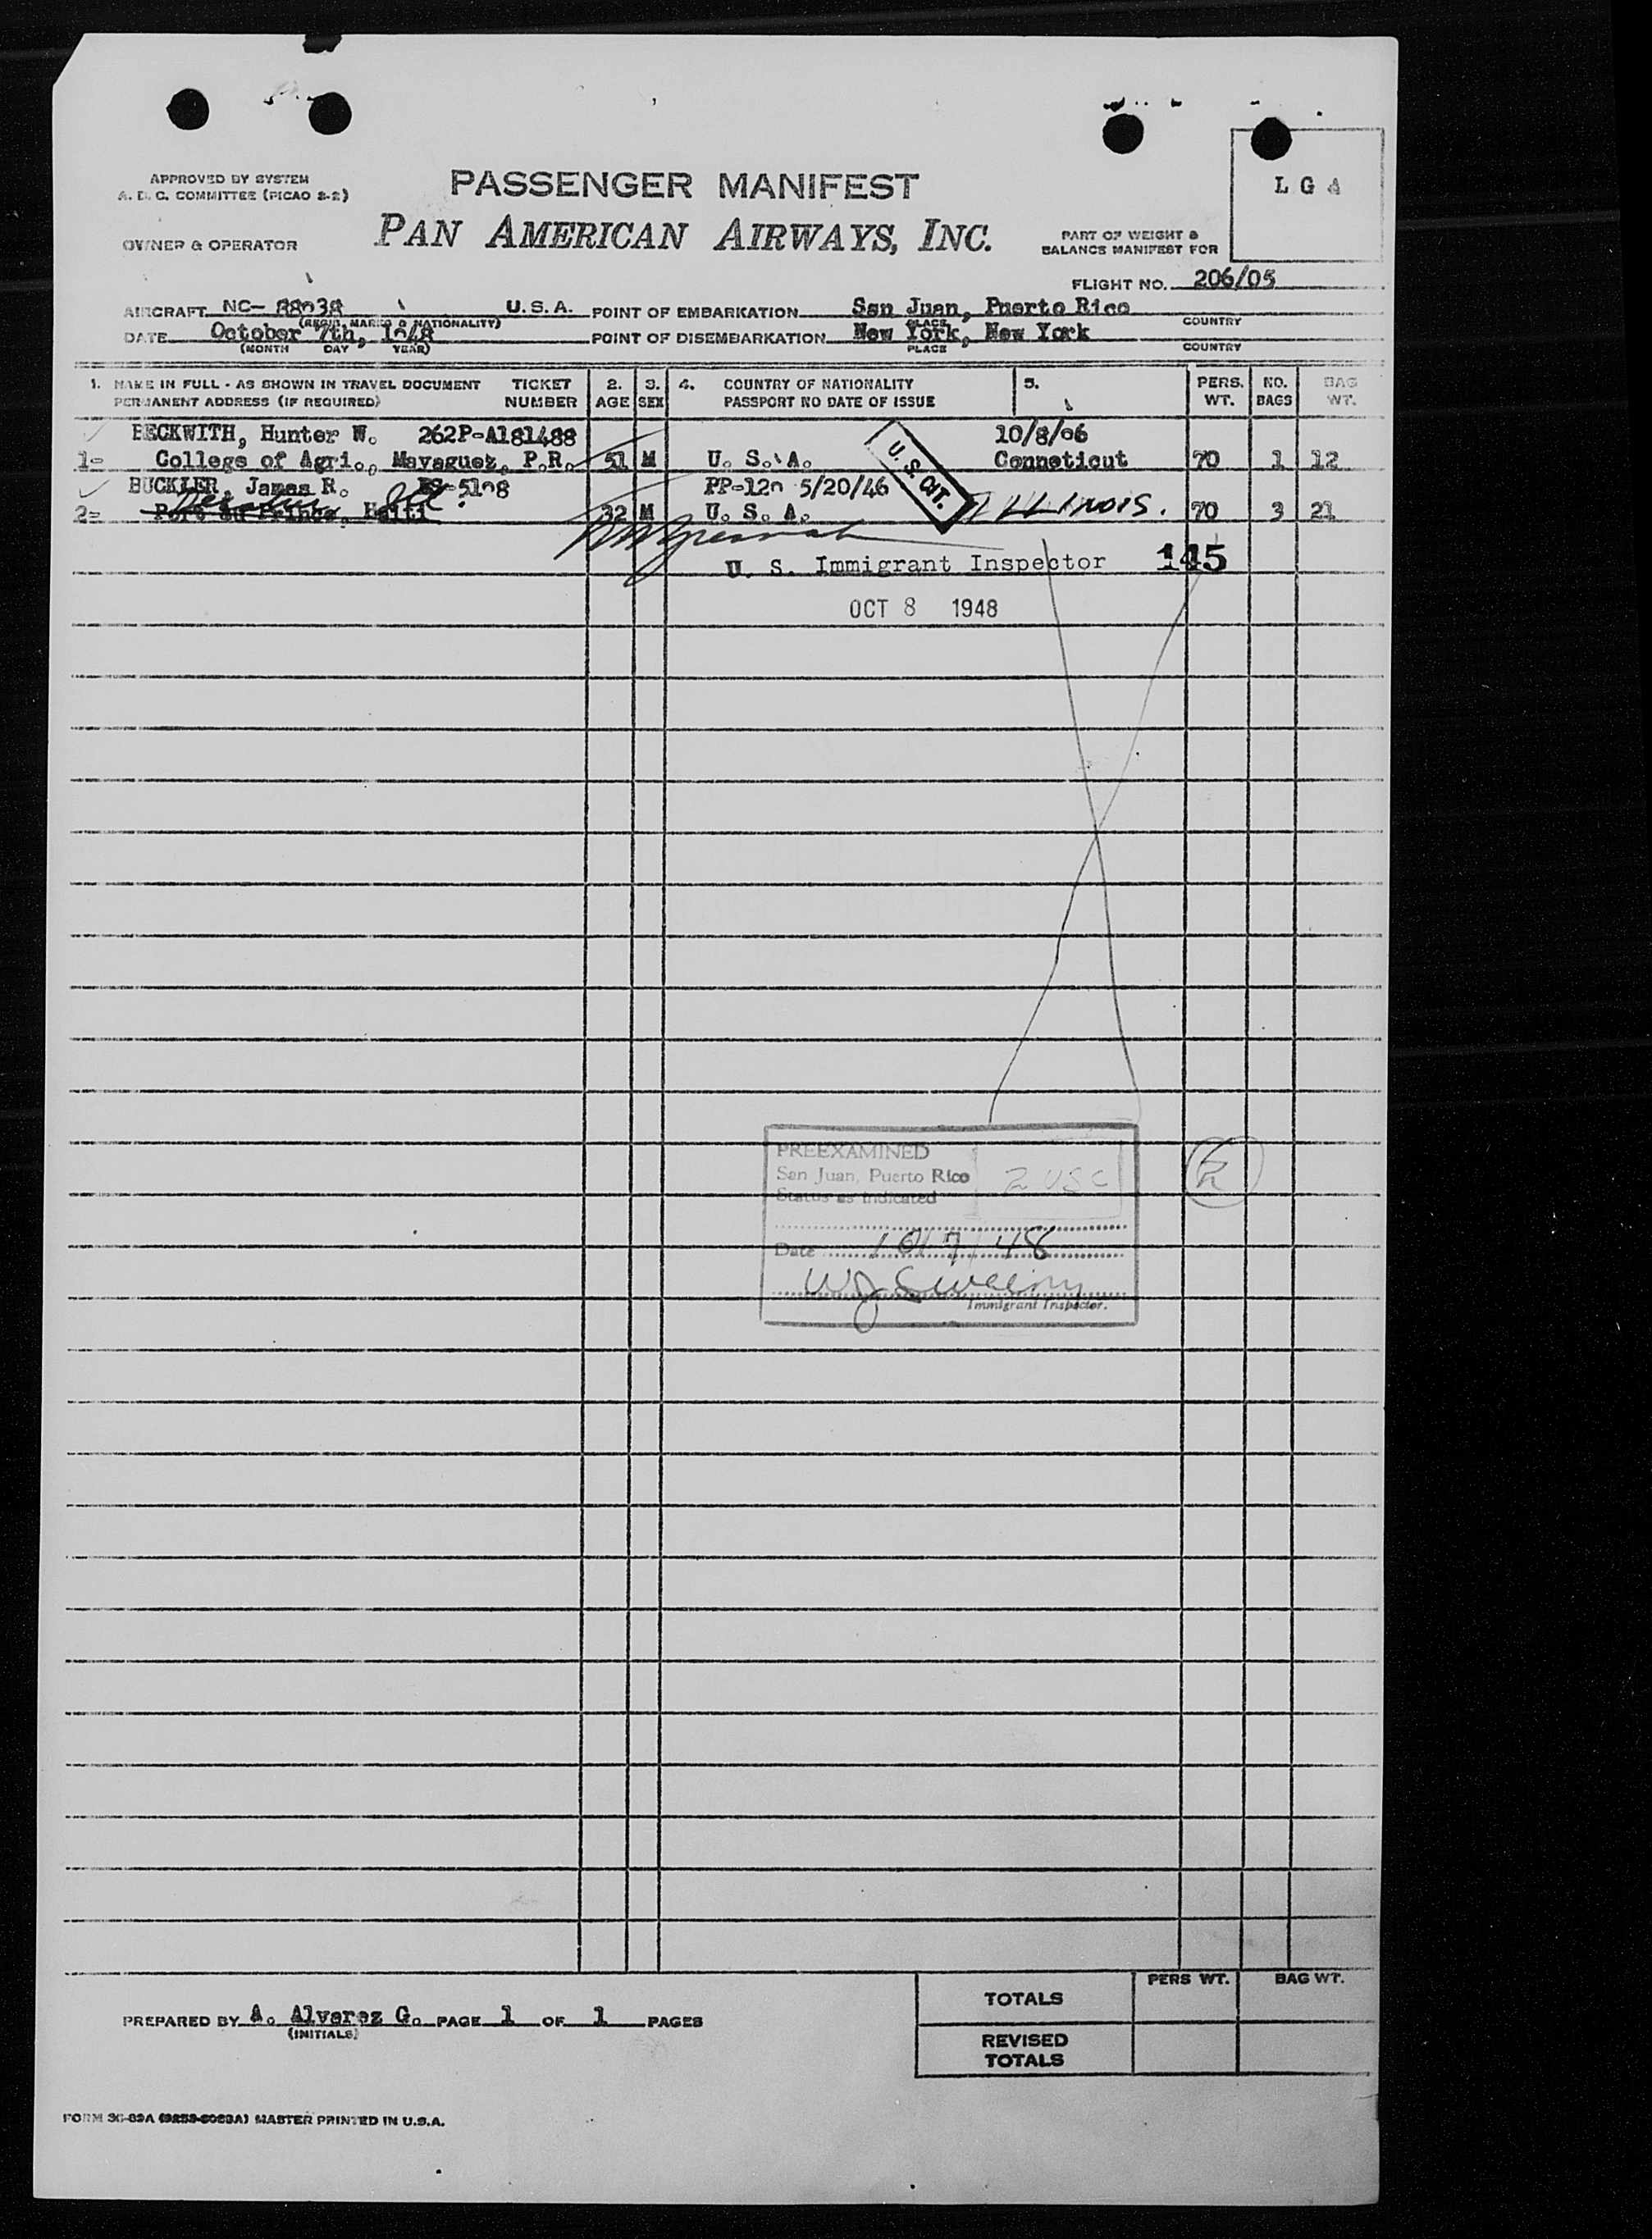 APPROVED BY SYSTEM
A. D. C. COMMITTEE (PICAO 2-2)
OWNER & OPERATOR
PASSENGER MANIFEST
PAN AMERICAN AIRWAYS, INC.
PART OF WEIGHT &
BALANCE MANIFEST FOR
L G A
FLIGHT NO. 206/05
AIRCRAFT NC- 88038 U. S. A. POINT OF EMBARKATION San Juan, Puerto Rico
(REGIS. MARKS & NATIONALITY) PLACE COUNTRY
DATE October 7th, 1948 POINT OF DISEMBARKATION New York, New York
(MONTH DAY YEAR) PLACE COUNTRY
1. NAME IN FULL - AS SHOWN IN TRAVEL DOCUMENT TICKET 2. 3. 4. COUNTRY OF NATIONALITY 5. PERS. NO. BAG
PERMANENT ADDRESS (IF REQUIRED) NUMBER AGE SEX PASSPORT NO DATE OF ISSUE WT. BAGS WT.
BECKWITH, Hunter W. 262P-A181488 10/8/96
1- College of Agri., Mayaguez, P.R. 51 M U. S. A. Conneticut 70 1 12
BUCKLER, James R. BS-5198 PP-120 5/20/46
U. S. CIT.
2- Port au Prince, Haiti 32 M U. S. A. ILLINOIS. 70 3 21
U. S. Immigrant Inspector 145
OCT 8 1948
PREEXAMINED
San Juan, Puerto Rico 2 USC
Status as indicated
Date 10/7/48
WJ Sweeny
Immigrant Inspector.
PREPARED BY A. Alvarez G. PAGE 1 OF 1 PAGES
(INITIALS)
PERS WT. BAG WT.
TOTALS
REVISED
TOTALS
MASTER PRINTED IN U.S.A.